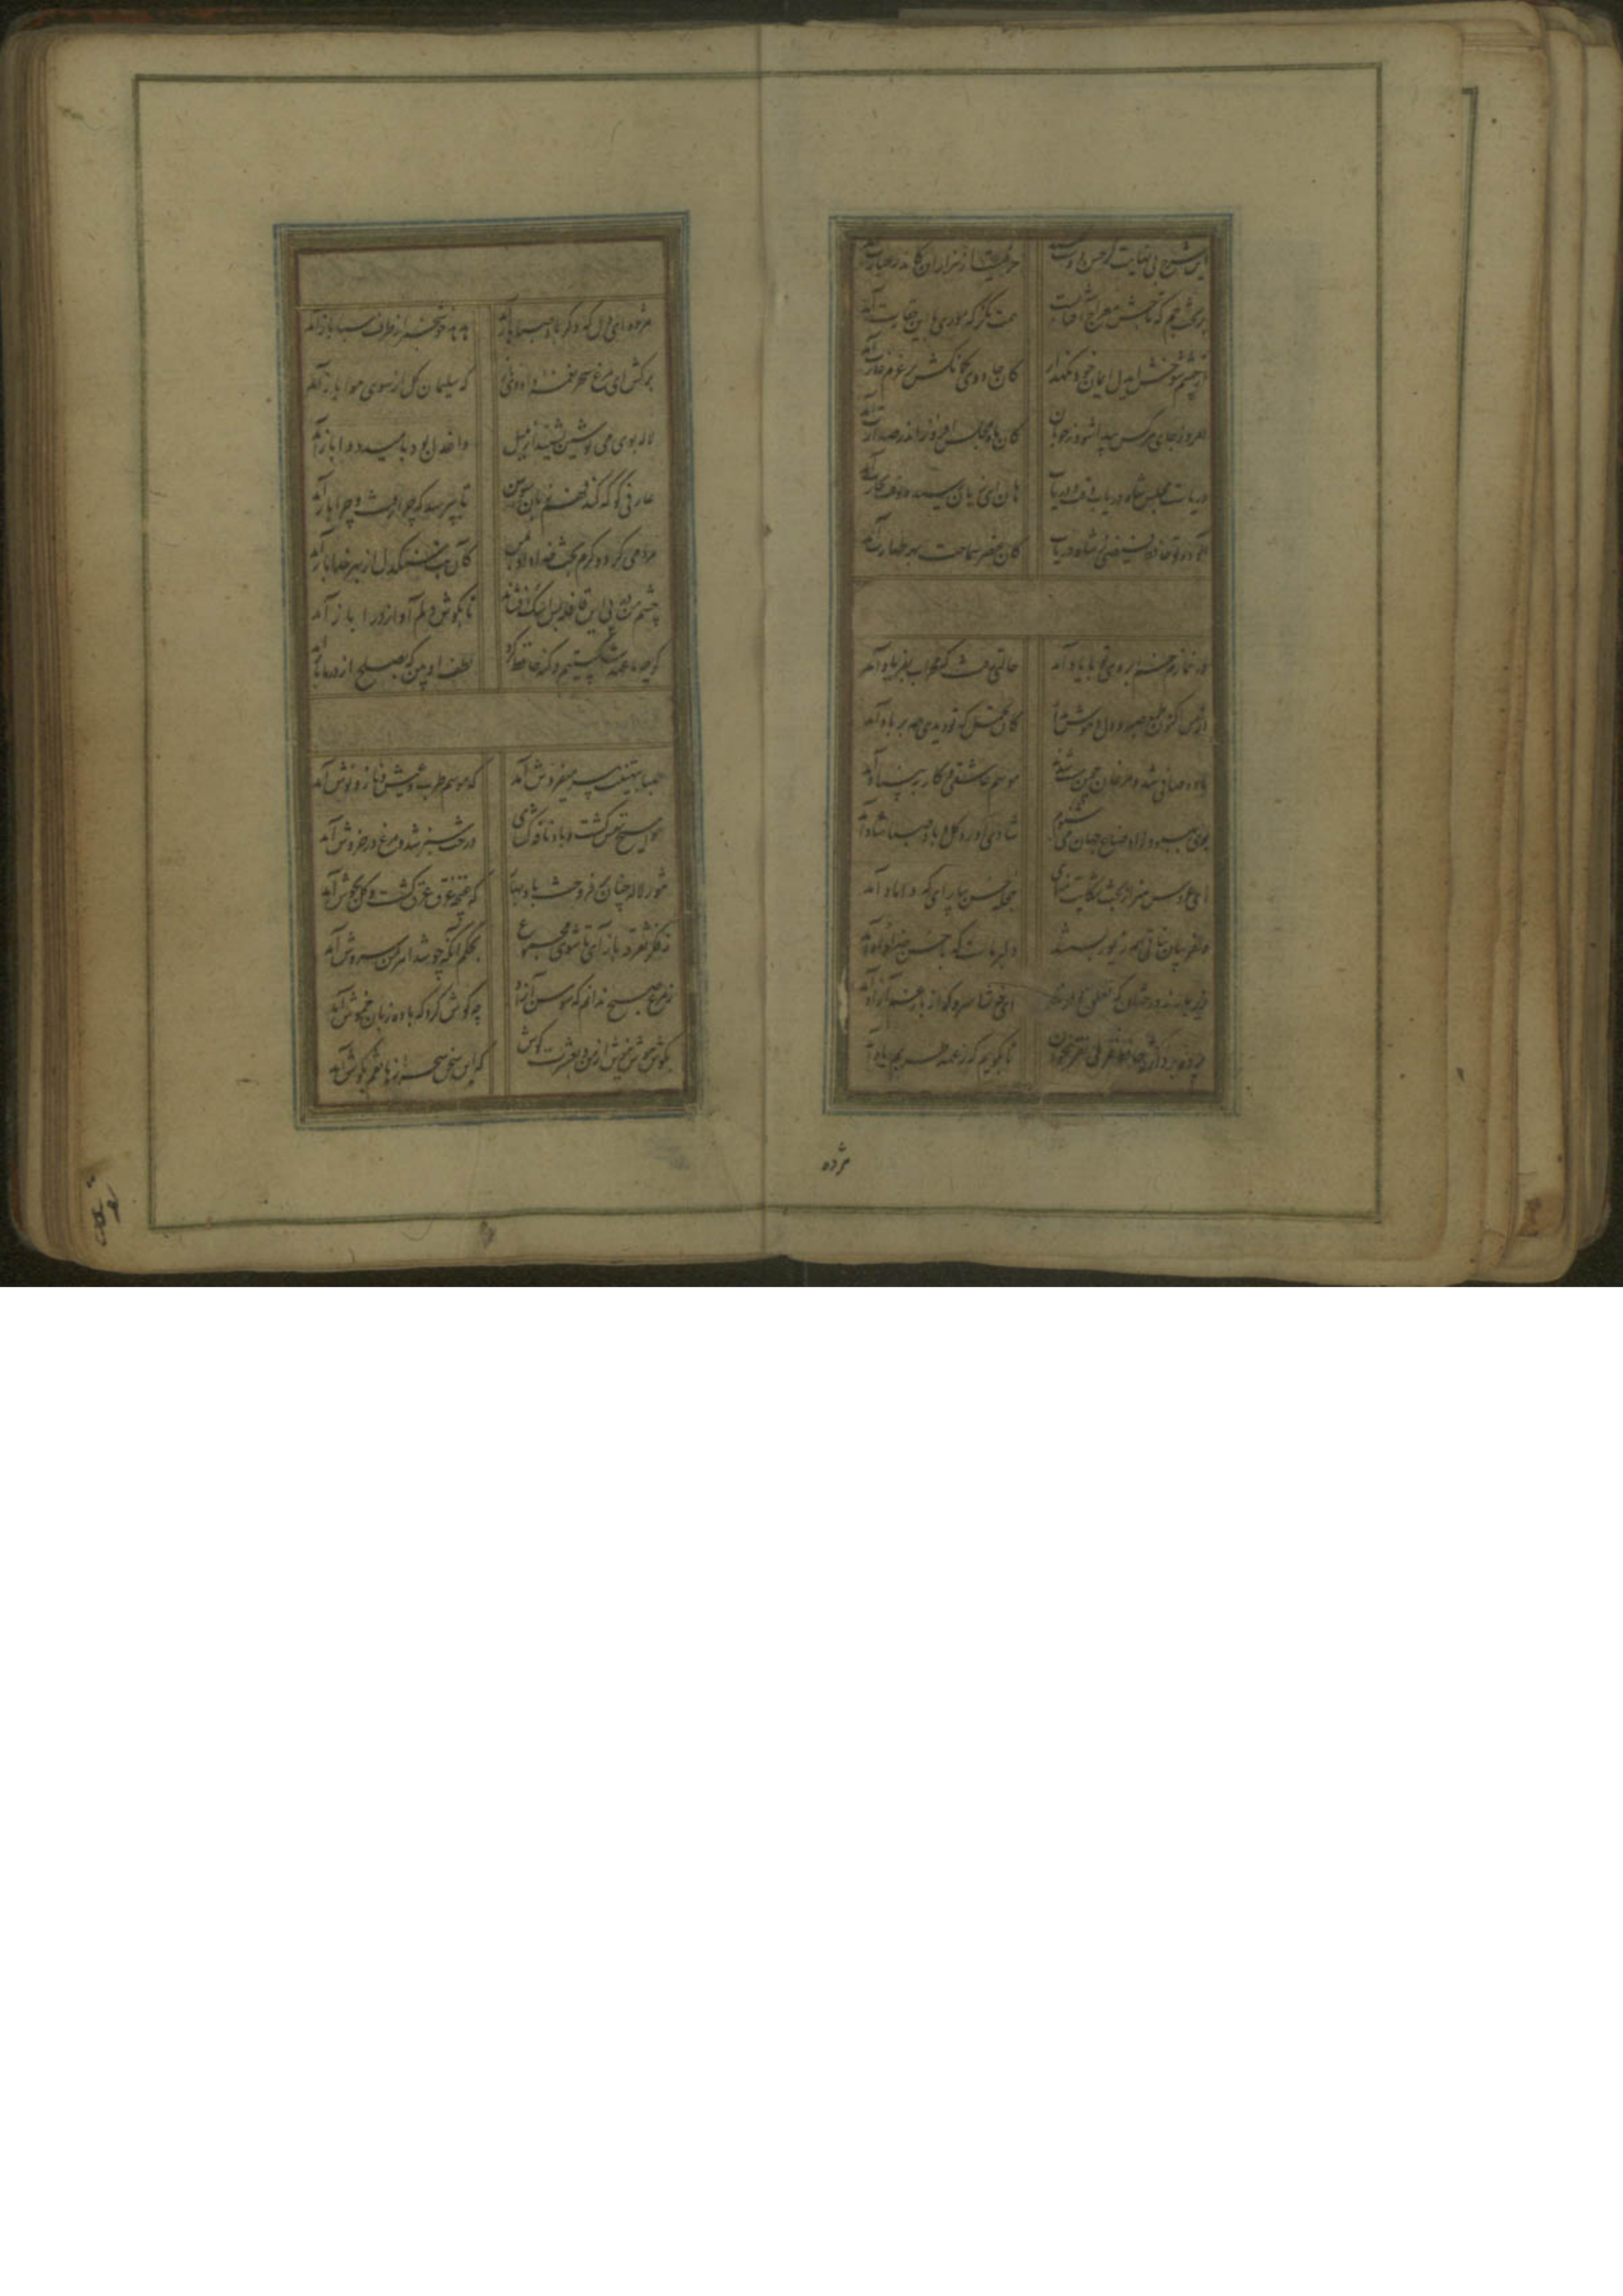 این شرح بی نهایت کز حسن دوست گفتند حرفیست از هزاران کاندر عبارت آمد
بر تخت جم که تاجش معراج آفتابست همت نگر که موری با این حقارت آمد
از چشم شوخش ای دل ایمان خود نگهدار کان جادوی کمانکش بر عزم غارت آمد
امروز جای هر کس پیدا شود ز خوبان کان ماه مجلس افروز اندر صدارت آمد
دریاست مجلس شاه دریاب وقت و دریاب هان ای زیان رسیده وقت تجارت آمد
آلوده تو حافظ فیضی ز شاه دریاب کان عنصر سماحت بهر طهارت آمد
در نمازم خم ابروی تو با یاد آمد حالتی رفت که محراب بفریاد آمد
از من اکنون طمع صبر و دل و هوش مدار کان تحمل که تو دیدی همه بر باد آمد
باده صافی شد و مرغان چمن مست شدند موسم عاشقی و کار به بنیاد آمد
بوی بهبود ز اوضاع جهان می شنوم شادی آورد گل و باد صبا شاد آمد
ای عروس هنر از بخت شکایت منمای حجله حسن بیارای که داماد آمد
دلفریبان نباتی همه زیور بستند دلبر ماست که با حسن خداداد آمد
زیر بارند درختان که تعلق دارند ای خوشا سرو که از بار غم آزاد آمد
تا بگویم که ز عهد طربم یاد آمد
مژده
مژده ای دل که دگر باد صبا باز آمد هدهد خوش خبر از طرف سبا باز آمد
برکش ای مرغ سحر نغمه داودی که سلیمان گل از سوی هوا باز آمد
لاله بوی می نوشین بشنید از داغ دل بود بامید دوا باز آمد
عارفی کو که کند فهم زبان سوسن تا بپرسد که چرا رفت و چرا باز آمد
مردمی کرد و کرم بخت خداداد بمن کان بت سنگدل از بهر خدا باز آمد
چشم من در پی این قافله بس اشک فشاند تا بگوش دلم آواز درا باز آمد
گرچه ما عهد شکستیم و گنه حافظ کرد لطف او بین که بصلح از در ما باز آمد
صبا بتهنیت پیر میفروش آمد که موسم طرب و عیش و ناز و نوش آمد
هوا مسیح نفس گشت و باد نافه گشای درخت سبز شد و مرغ در خروش آمد
تنور لاله چنان برفروخت باد بهار که غنچه غرق عرق گشت و گل بجوش آمد
ز فکر تفرقه باز آی تا شوی مجموع بحکم آنکه چو شد اهرمن سروش آمد
ز مرغ صبح ندانم که سوسن آزاد چه گوش کرد که با ده زبان خموش آمد
بگوش هوش نیوش از من و بعشرت کوش که این سخن سحر از هاتفم بگوش آمد